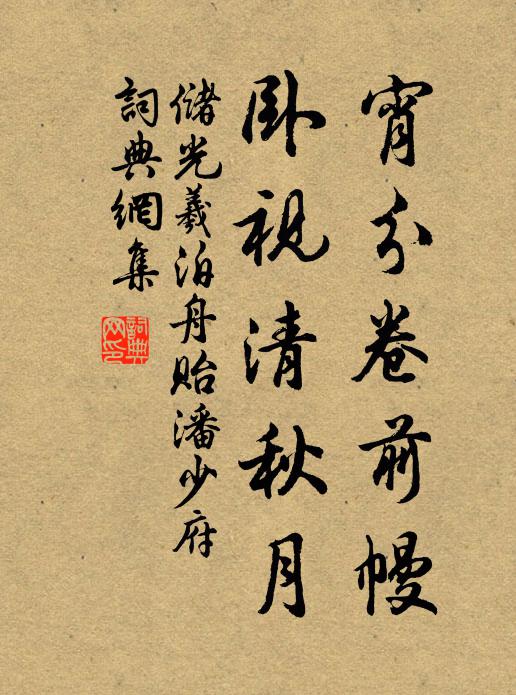 宵分卷前幔
卧視清秋月
儲光羲泊舟貽潘少府
詞典網集
詞典
网印